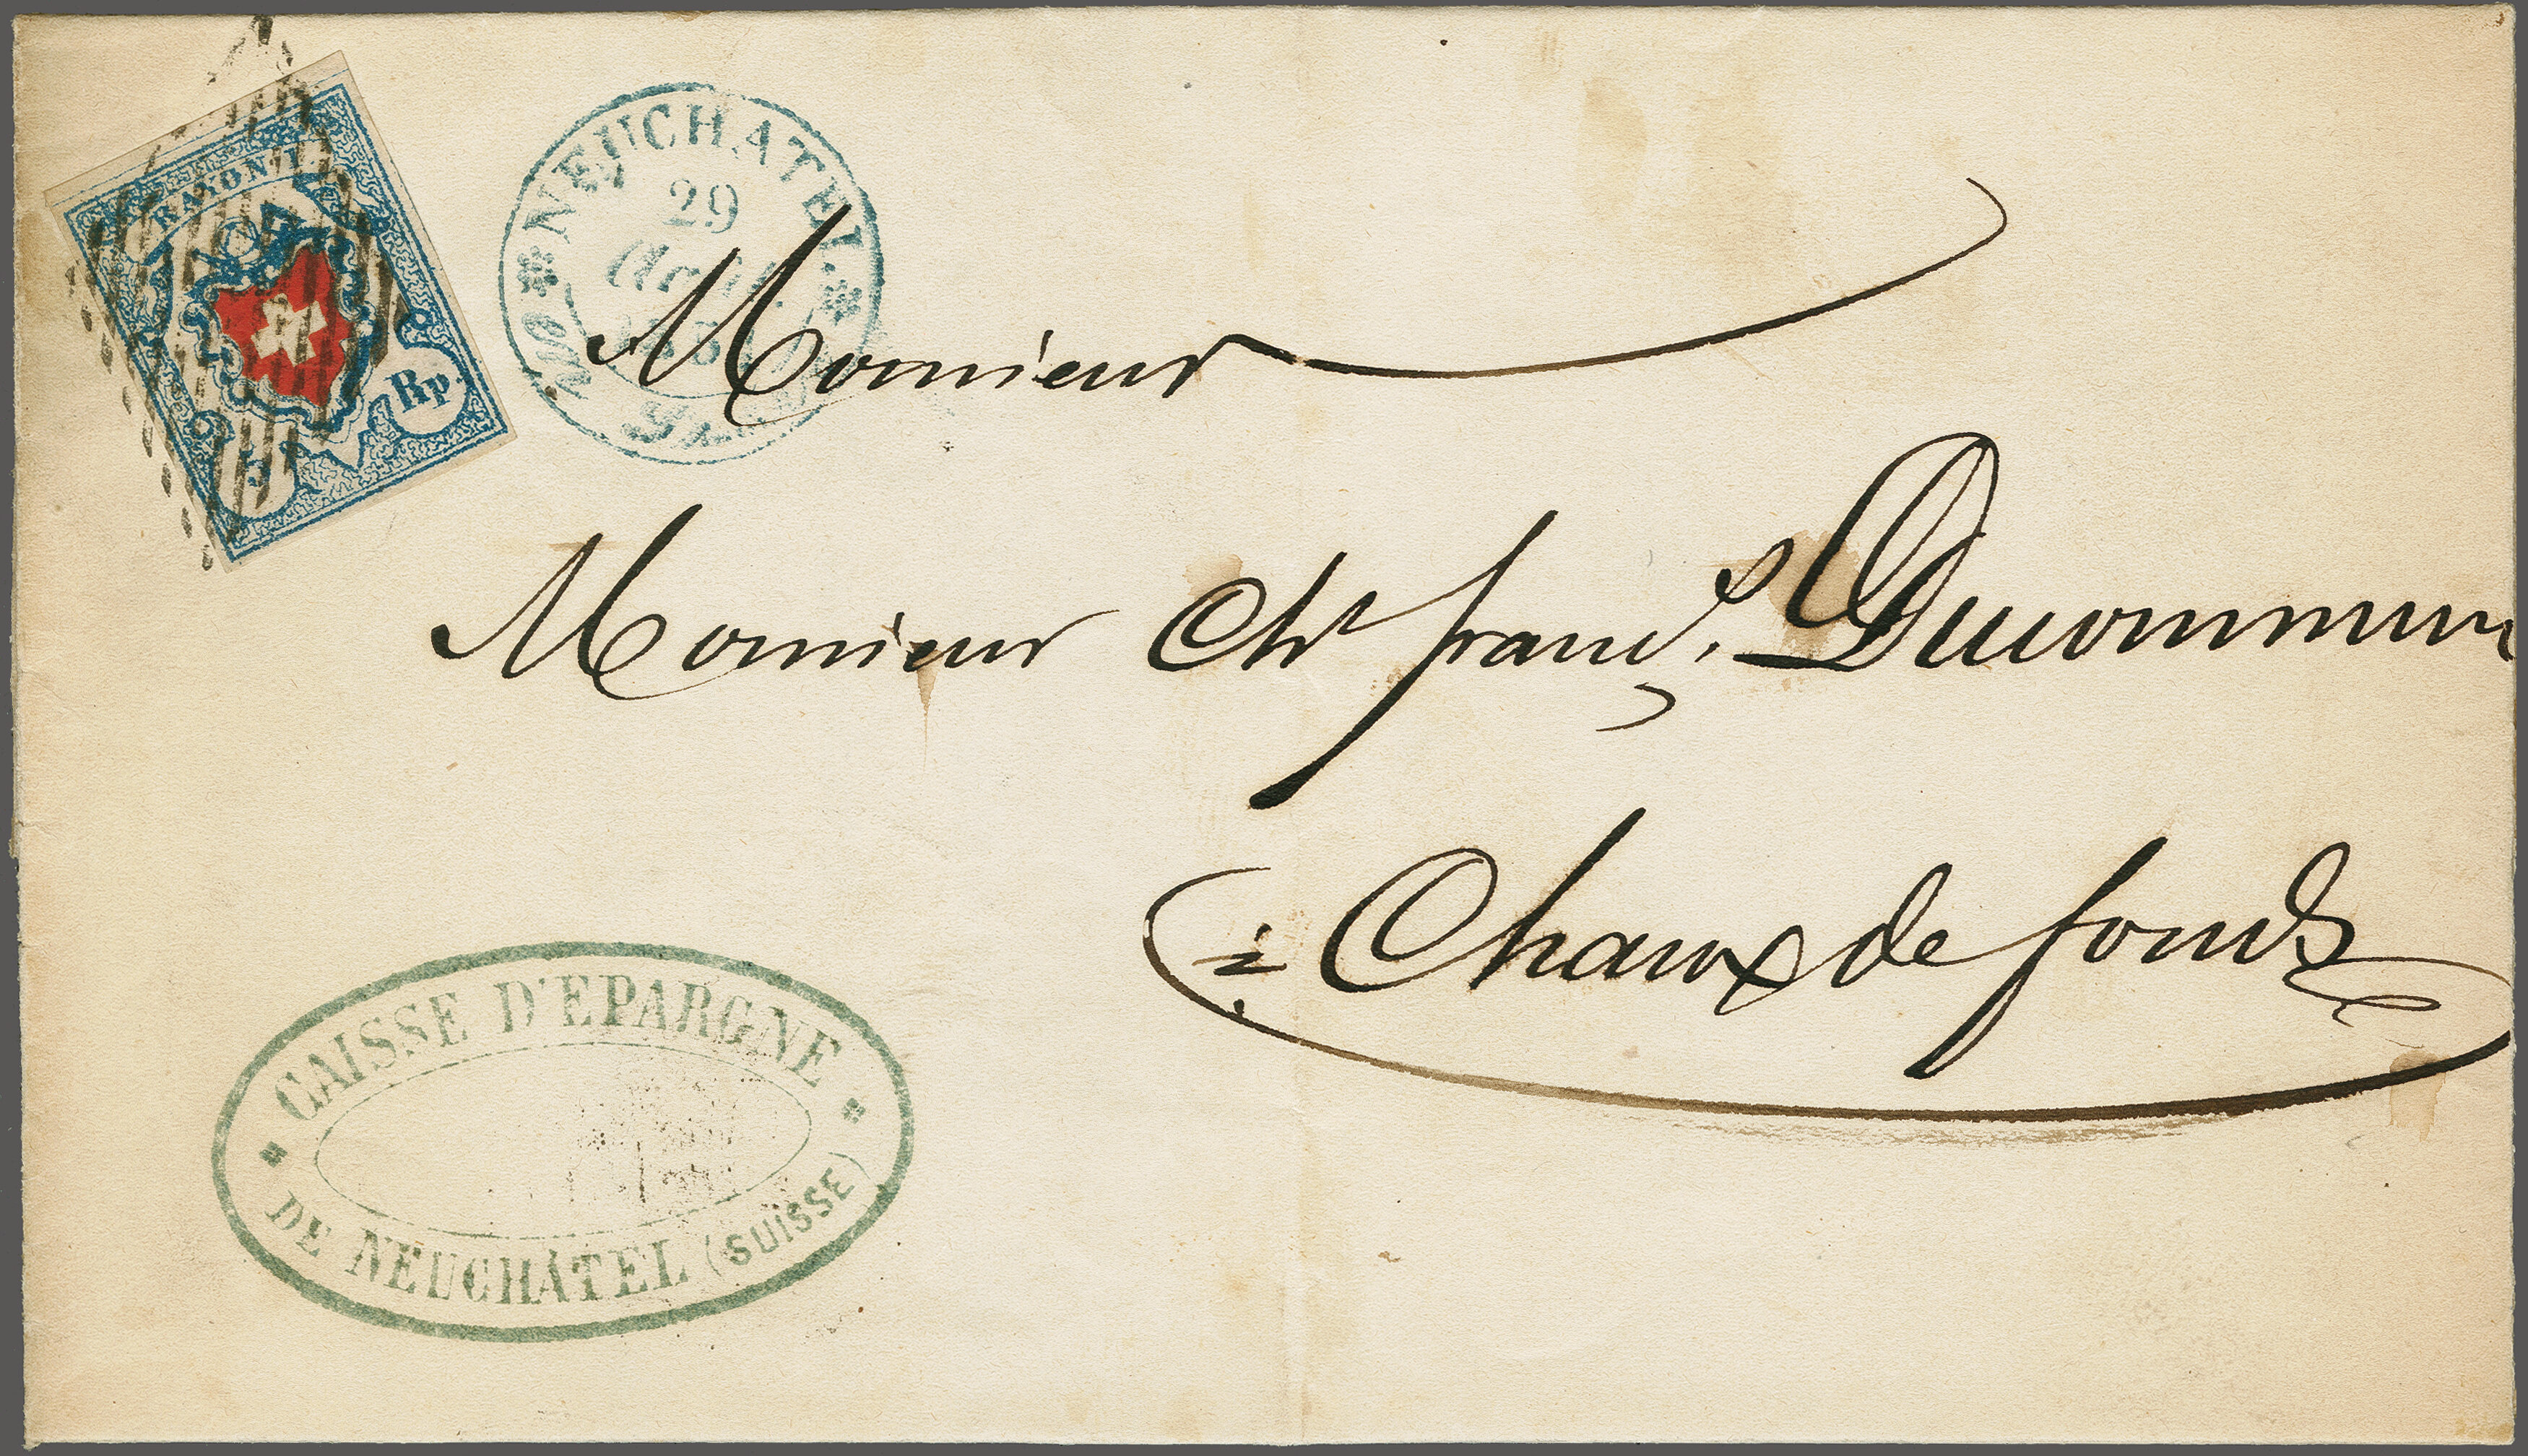 RAYON. I.
5 Rp.
NEUCHATEL.
29
Monsieur
Monsieur Ch.s franç.s Ducommun
à Chaux de fonds
CAISSE D'EPARGNE
DE NEUCHÂTEL (SUISSE)